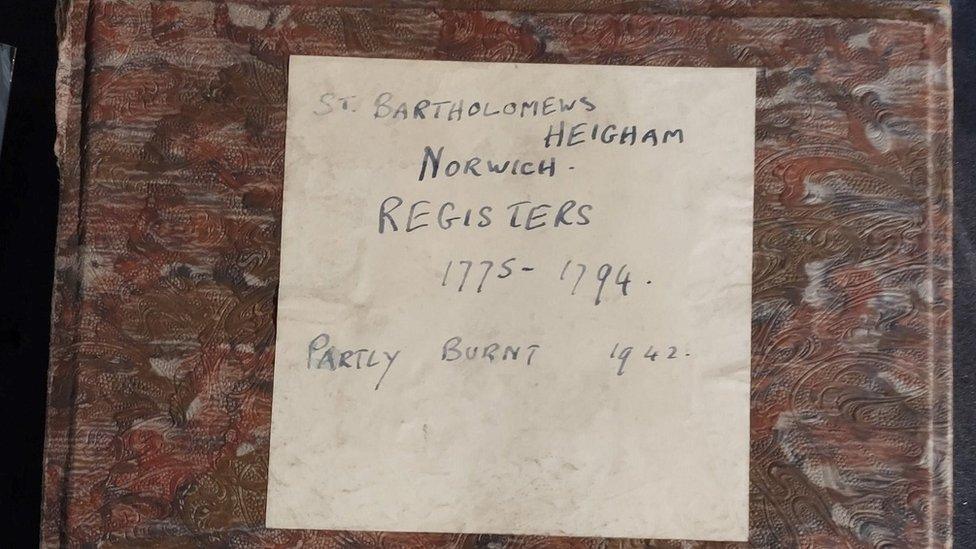 ST. BARTHOLOMEWS
HEIGHAM
NORWICH.
REGISTERS
1775-1794.
PARTLY BURNT 1942.